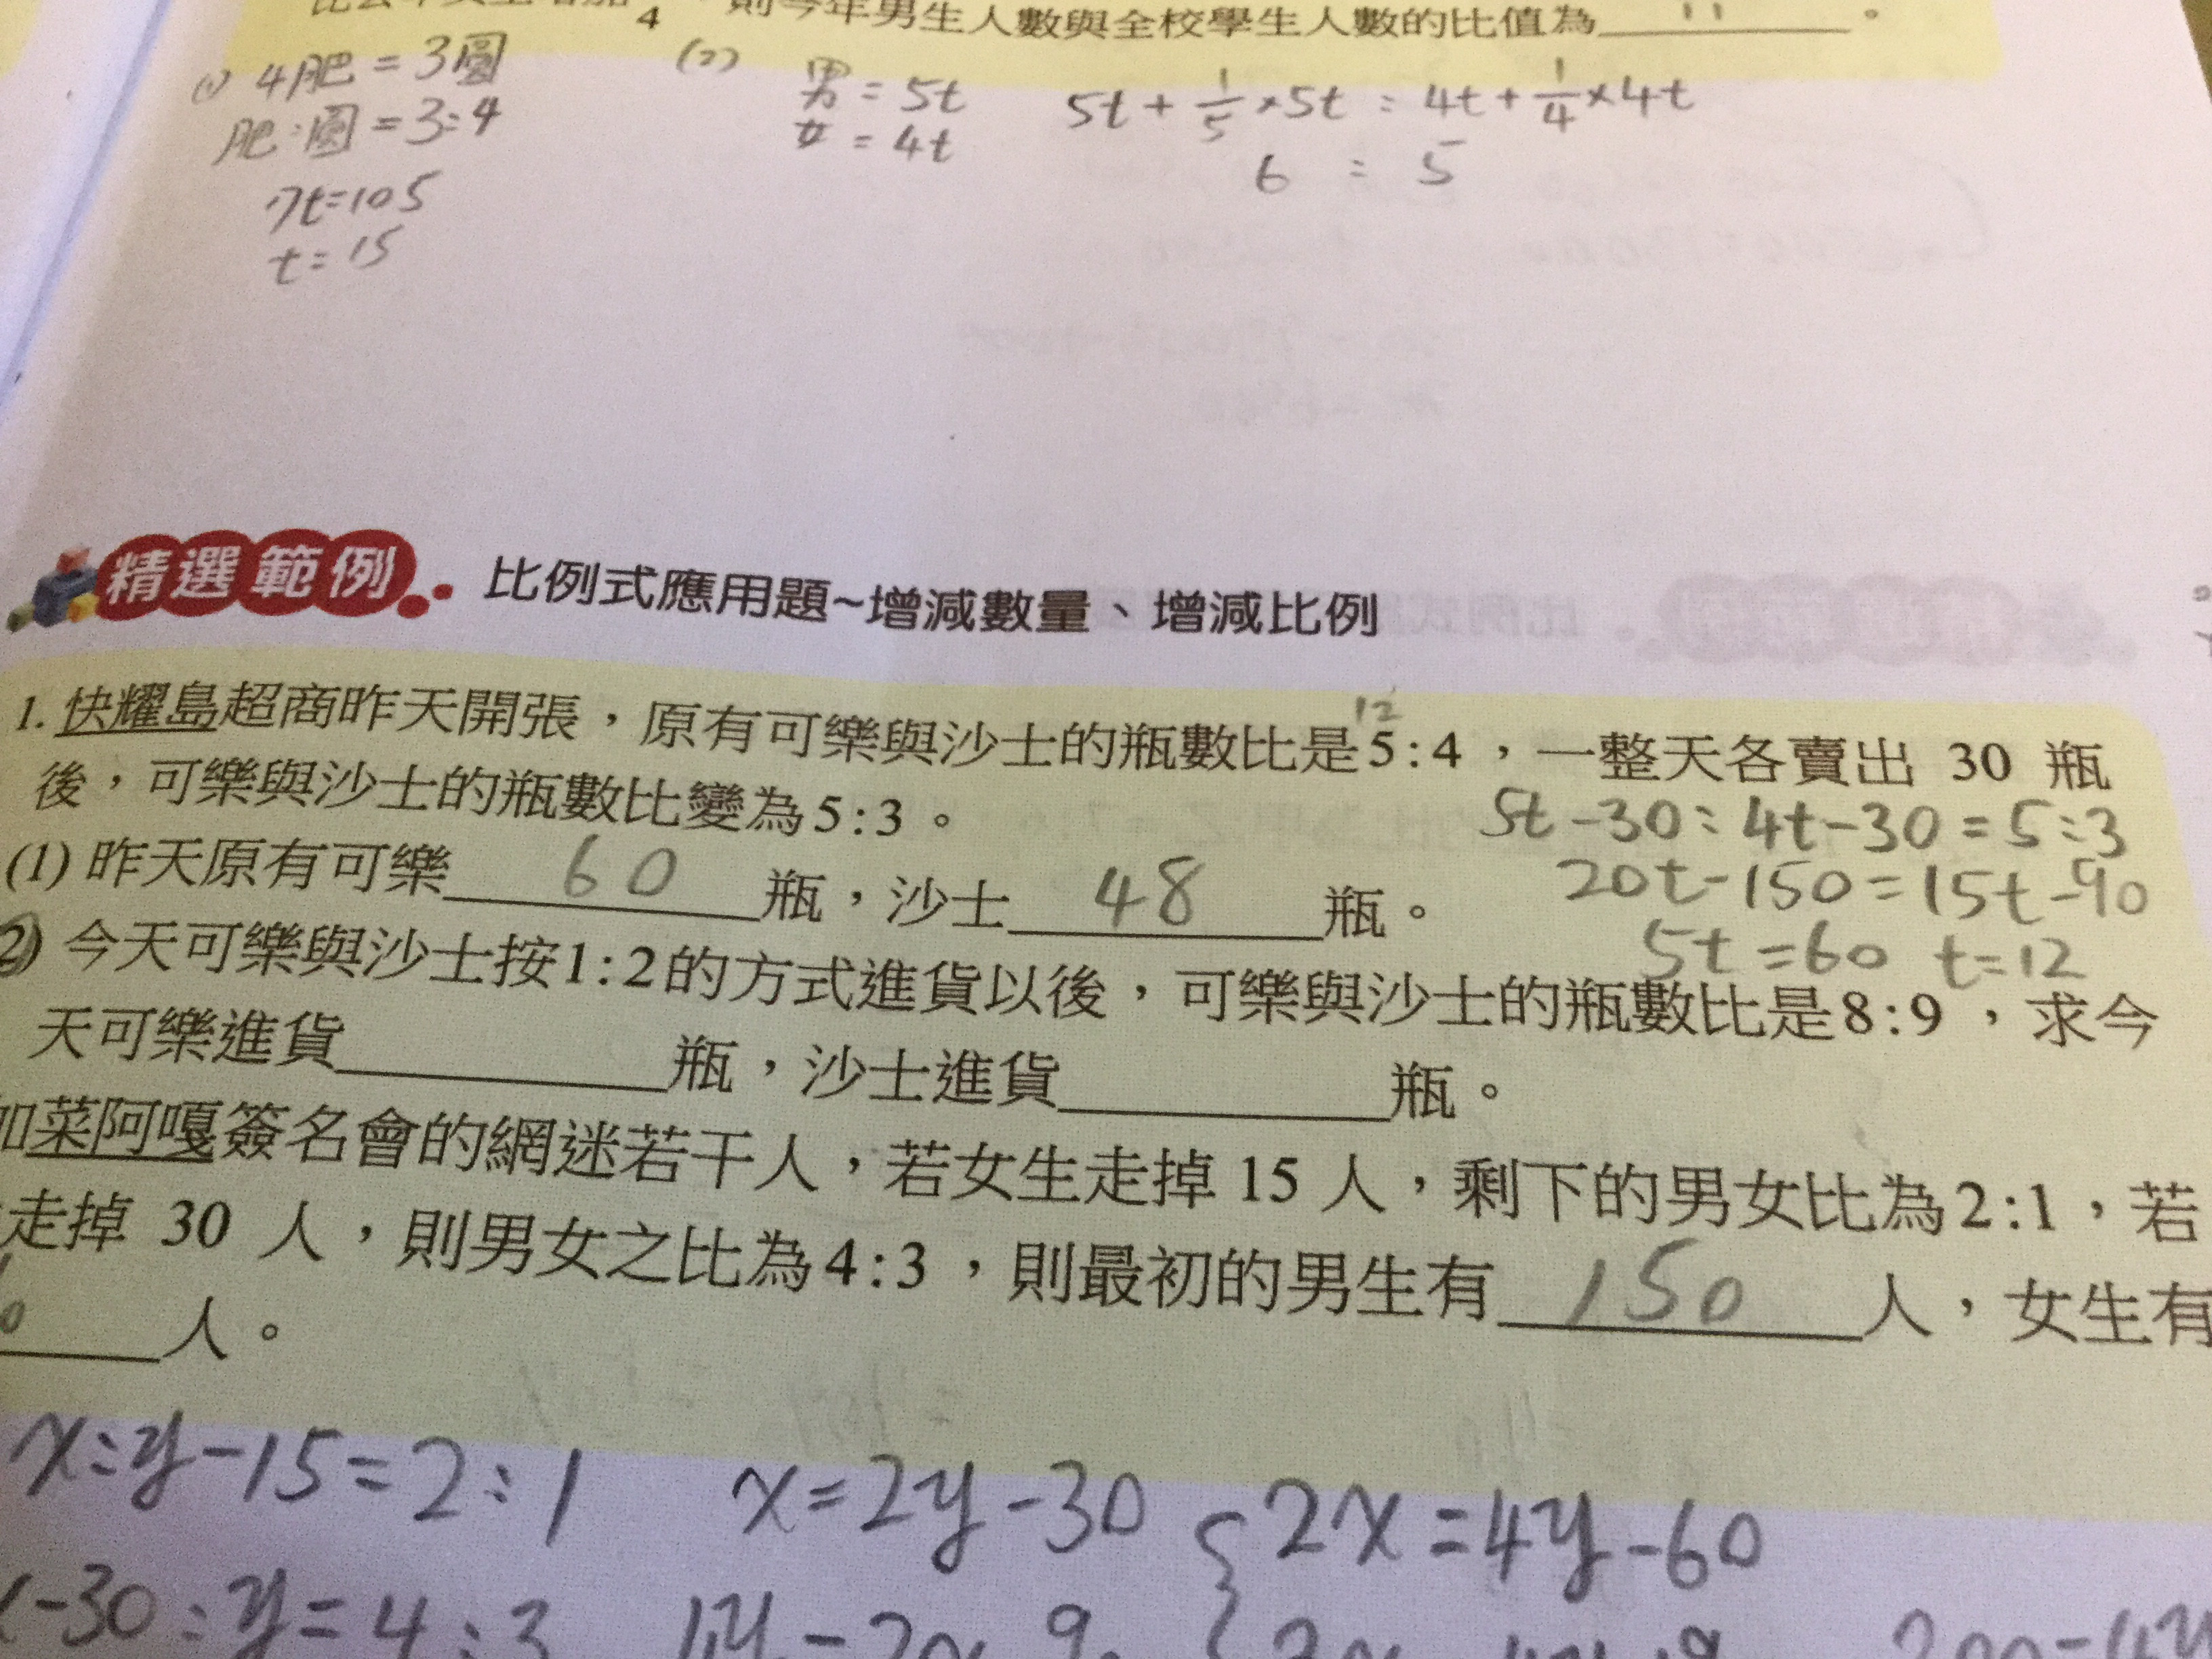 4，則今年男生人數與全校學生人數的比值為 11 。
(1) 4肥=3圓
肥:圓=3:4
7t=105
t=15
(2) 男=5t
女=4t
5t+1/5×5t:4t+1/4×4t
6 : 5
精選範例 比例式應用題~增減數量、增減比例
12
1. 快耀島超商昨天開張，原有可樂與沙士的瓶數比是5:4，一整天各賣出 30 瓶
後，可樂與沙士的瓶數比變為5:3。
5t-30:4t-30=5:3
(1) 昨天原有可樂 60 瓶，沙士 48 瓶。
20t-150=15t-90
5t=60 t=12
2) 今天可樂與沙士按1:2的方式進貨以後，可樂與沙士的瓶數比是8:9，求今
天可樂進貨 瓶，沙士進貨 瓶。
加菜阿嘎簽名會的網迷若干人，若女生走掉 15 人，剩下的男女比為2:1，若
走掉 30 人，則男女之比為4:3，則最初的男生有 150 人，女生有
0 人。
x:y-15=2:1 x=2y-30 {2x=4y-60
-30:y=4:3